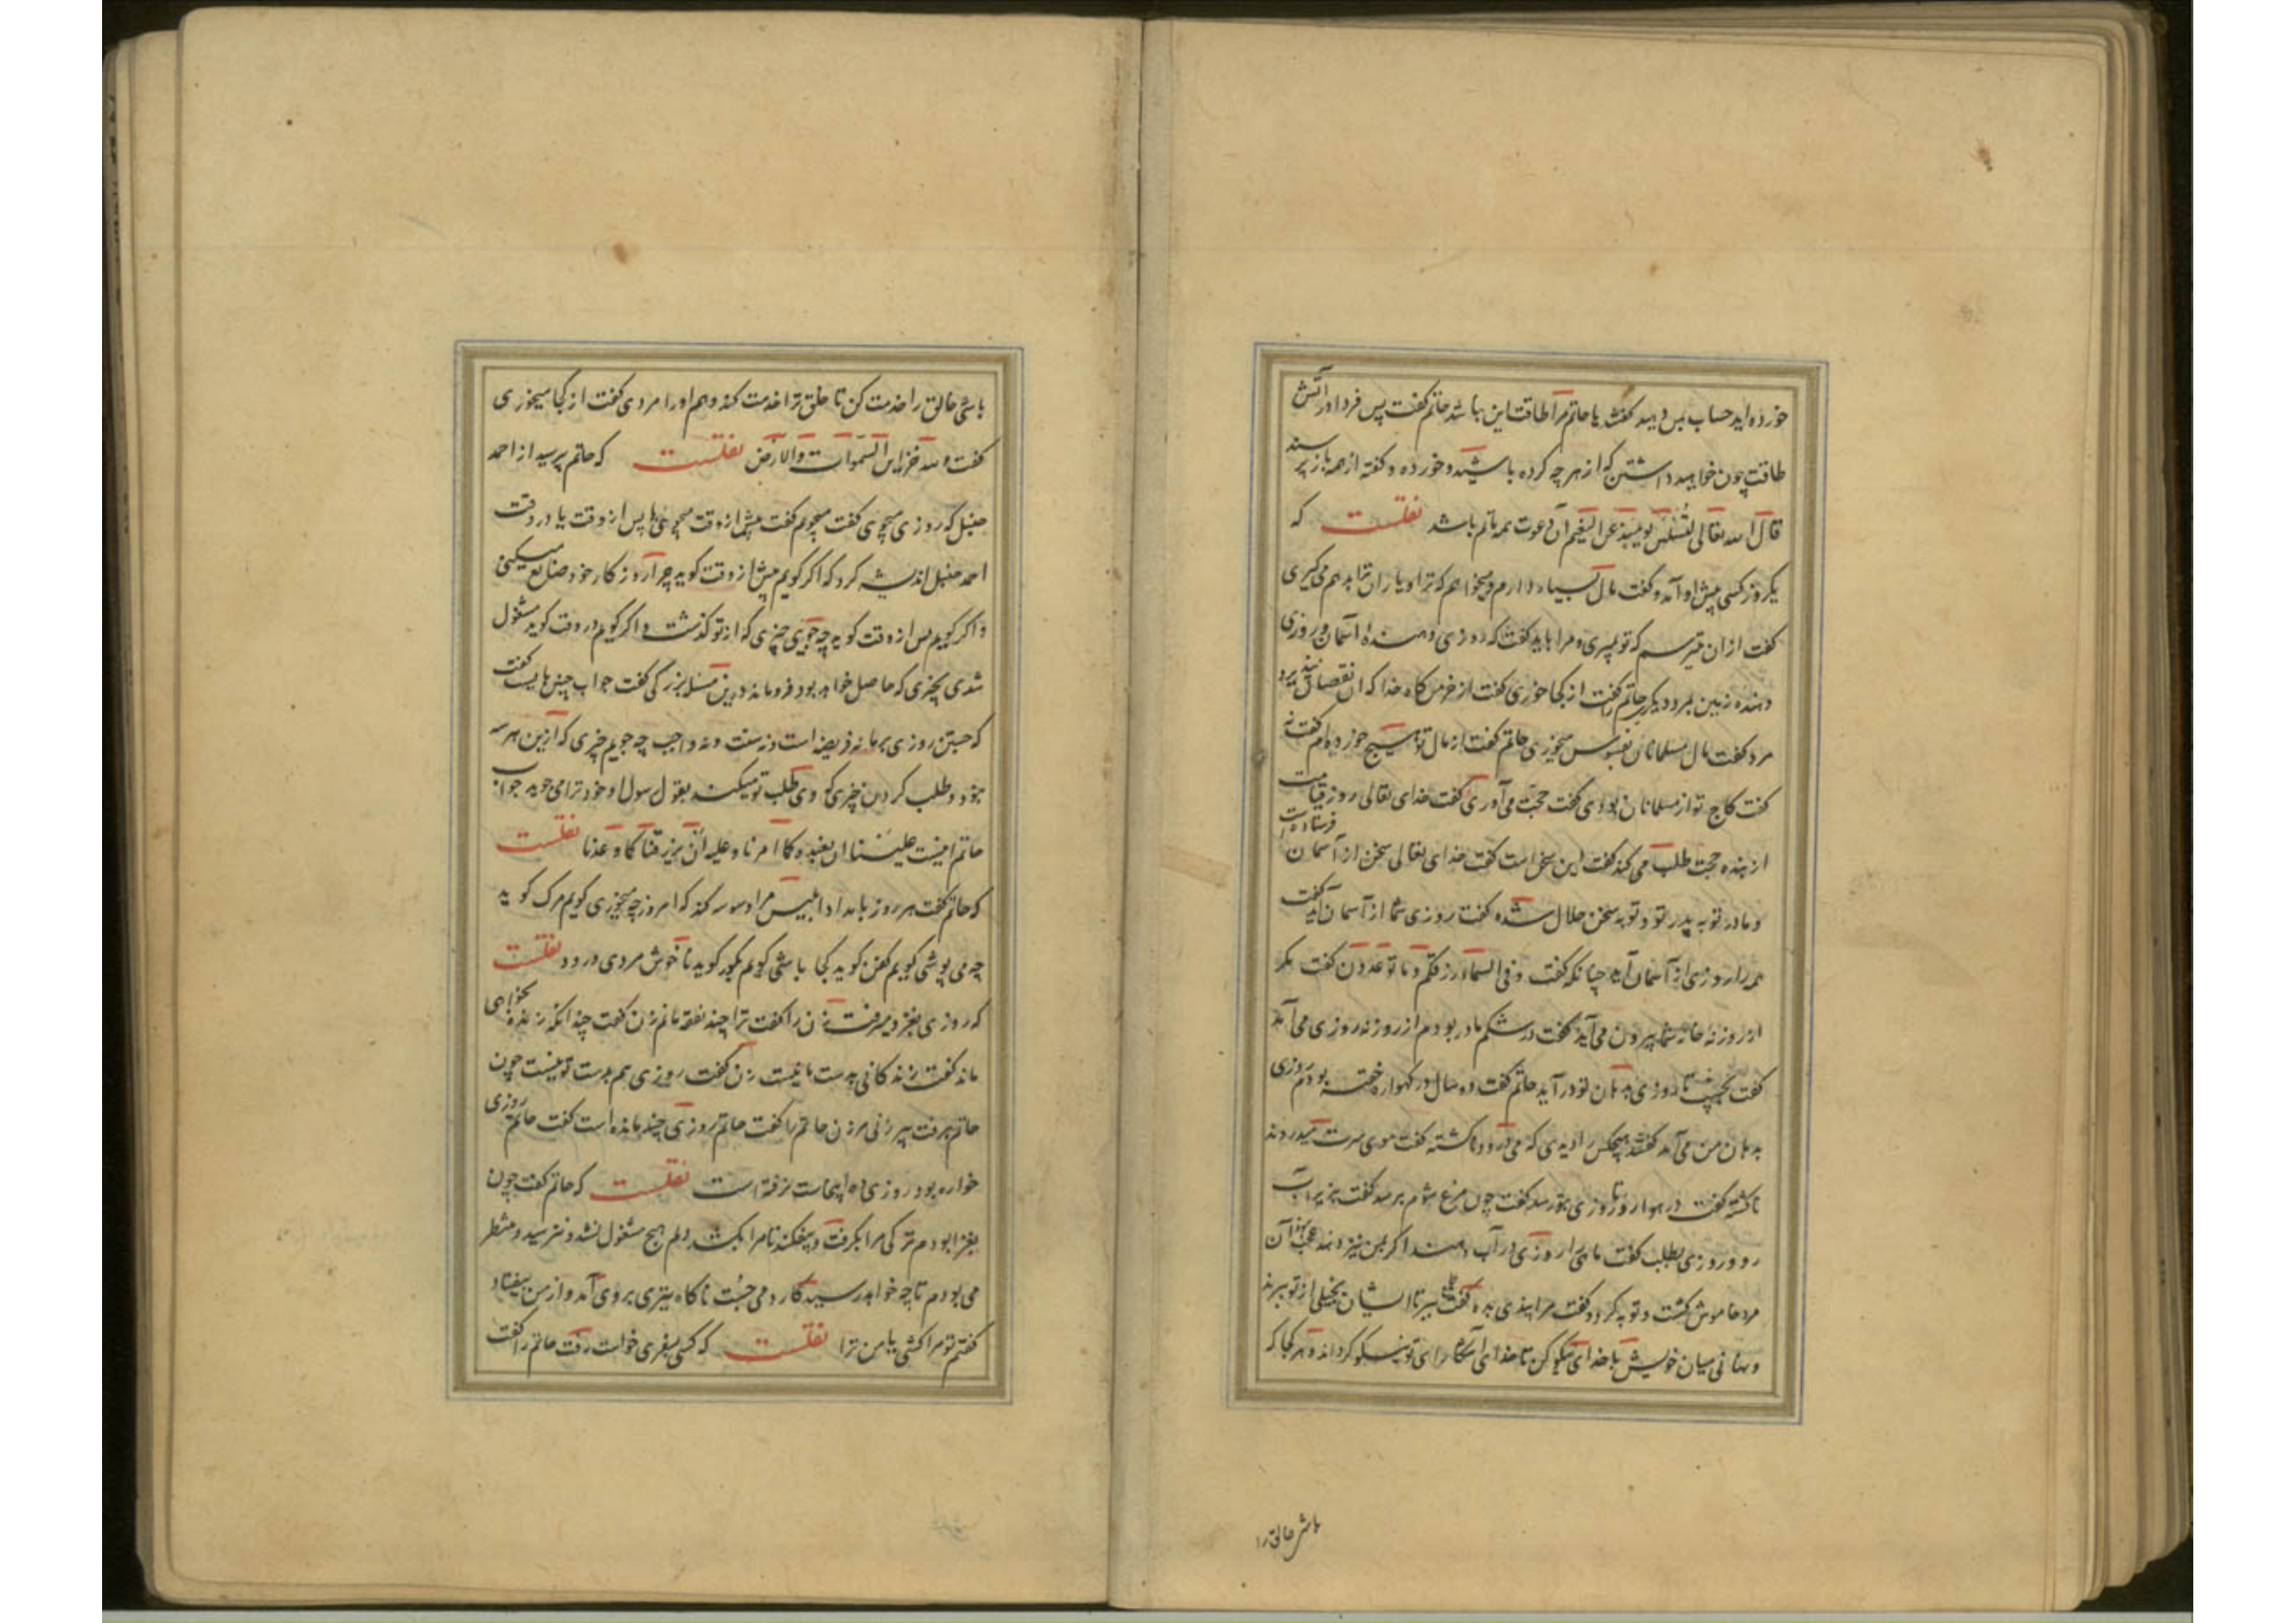 خورده‌اید حساب پس دهید گفتند یا حاتم مرا طاقت این نباشد حاتم گفت پس فردا در آتش
طاقت چون خواهید داشتن که از هر چه کرده باشید و خورده و گفته از همه باز پرسند
قال الله تعالی لتسئلن یومئذ عن النعیم آن دعوت همه ماتم باشد نقلست که
یکروز کسی پیش او آمد و گفت مال بسیار دارم و میخواهم که ترا و یاران ترا بدهم می‌گیری
گفت از آن میترسم که تو بمیری و مرا باید گفت که روزی دهندهٔ آسمان روزی
دهنده زمین بمرد دیگری حاتم را گفت از کجا خوری گفت از خرمن‌گاه خدا که آن نقصان نپذیرد
مرد گفت مال مسلمانان بفسوس میخوری حاتم گفت از مال تو هیچ خورده‌ام گفت نه
گفت کاج تو از مسلمانان بودی گفت حجت می‌آوری گفت خدای تعالی روز قیامت
از بنده حجت طلب می‌کند گفت این سخن است گفت خدای تعالی سخن از آسمان فرستاده است
و مادر تو به پدر تو و تو به سخن حلال شده گفت روزی شما از آسمان آید گفت
همه را روزی از آسمان آید چنانکه گفت و فی السماء رزقکم و ما توعدون گفت مگر
از روزنهٔ خانه شما بیرون می‌آید گفت در شکم مادر بودم از روزنه روزی می‌آمد
گفت بخسب تا روزی بدهان تو در آید حاتم گفت دو سال در گهواره خفته بودم روزی
بدهان من می‌آمد گفت هیچکس را دیدی که می‌درود ناکشته گفت موی سرت میدروند
ناکشته گفت در هوا رو تا روزی بتو رسد گفت چون مرغ شوم برسد گفت بزیر آب
رو و روزی بطلب گفت ماهی را روزی در آب دهند اگر بمن نیز دهند عجب نبود آن
مرد خاموش گشت و توبه کرد و گفت مرا پندی بده گفت طمع ببر تا ایشان بخیلی از تو ببرند
و نهانی میان خویش با خدای نیکو کن تا خدای آشکارای تو نیکو گرداند و هر کجا که
باشی خالق را
باشی خالق را خدمت کن تا خلق ترا خدمت کنند و هم او را مردی گفت از کجا میخوری
گفت و لله خزاین السموات و الارض نقلست که حاتم پرسید از احمد
حنبل که روزی میجوی گفت میجویم گفت پیش از وقت میجوئی یا پس از وقت یا در وقت
احمد حنبل اندیشه کرد که اگر گویم پیش از وقت گوید چرا روزگار خود ضایع میکنی
و اگر گویم پس از وقت گوید چه جویی چیزی که از تو گذشت و اگر گویم در وقت گوید مشغول
شدی بچیزی که حاصل خواهد بود فرو ماند درین مسئله بزرگی گفت جواب چنین بایست گفت
که جستن روزی بر ما نه فریضه است و نه سنت و نه واجب چه جویم چیزی که ازین هر سه
نبود و طلب کردن چیزی که وی طلب تو میکند بقول رسول او خود ترا می جوید جواب
حاتم اینست علینا ان نعبده کما امرنا و علیه ان یرزقنا کما وعدنا نقلست
که حاتم گفت هر روز بامداد ابلیس مرا وسوسه کند که امروز چه میخوری گویم مرگ گوید
چه می پوشی گویم کفن گوید کجا باشی گویم بگور گوید ناخوش مردی درود نقلست
که روزی بغزو میرفت زن را گفت ترا چند نفقه مانم زن گفت چندانکه زنده بخواهی
ماند گفت زندگانی بدست ما نیست زن گفت روزی هم بدست تو نیست چون
حاتم برفت پیر زنی مر زن حاتم را گفت حاتم روزی چند مانده است گفت حاتم روزی
خواره بود روزی ده اینجاست نرفته است نقلست که حاتم گفت چون
بغزا بودم ترکی مرا بگرفت و بیفکند تا مرا بکشد دلم هیچ مشغول نشد و نترسید و منتظر
می بودم تا چه خواهد رسید کارد می جست ناگاه تیری بر وی آمد و از من بیفتاد
گفتم تو مرا کشتی یا من ترا نقلست که کسی بسفری خواست رفت حاتم را گفت